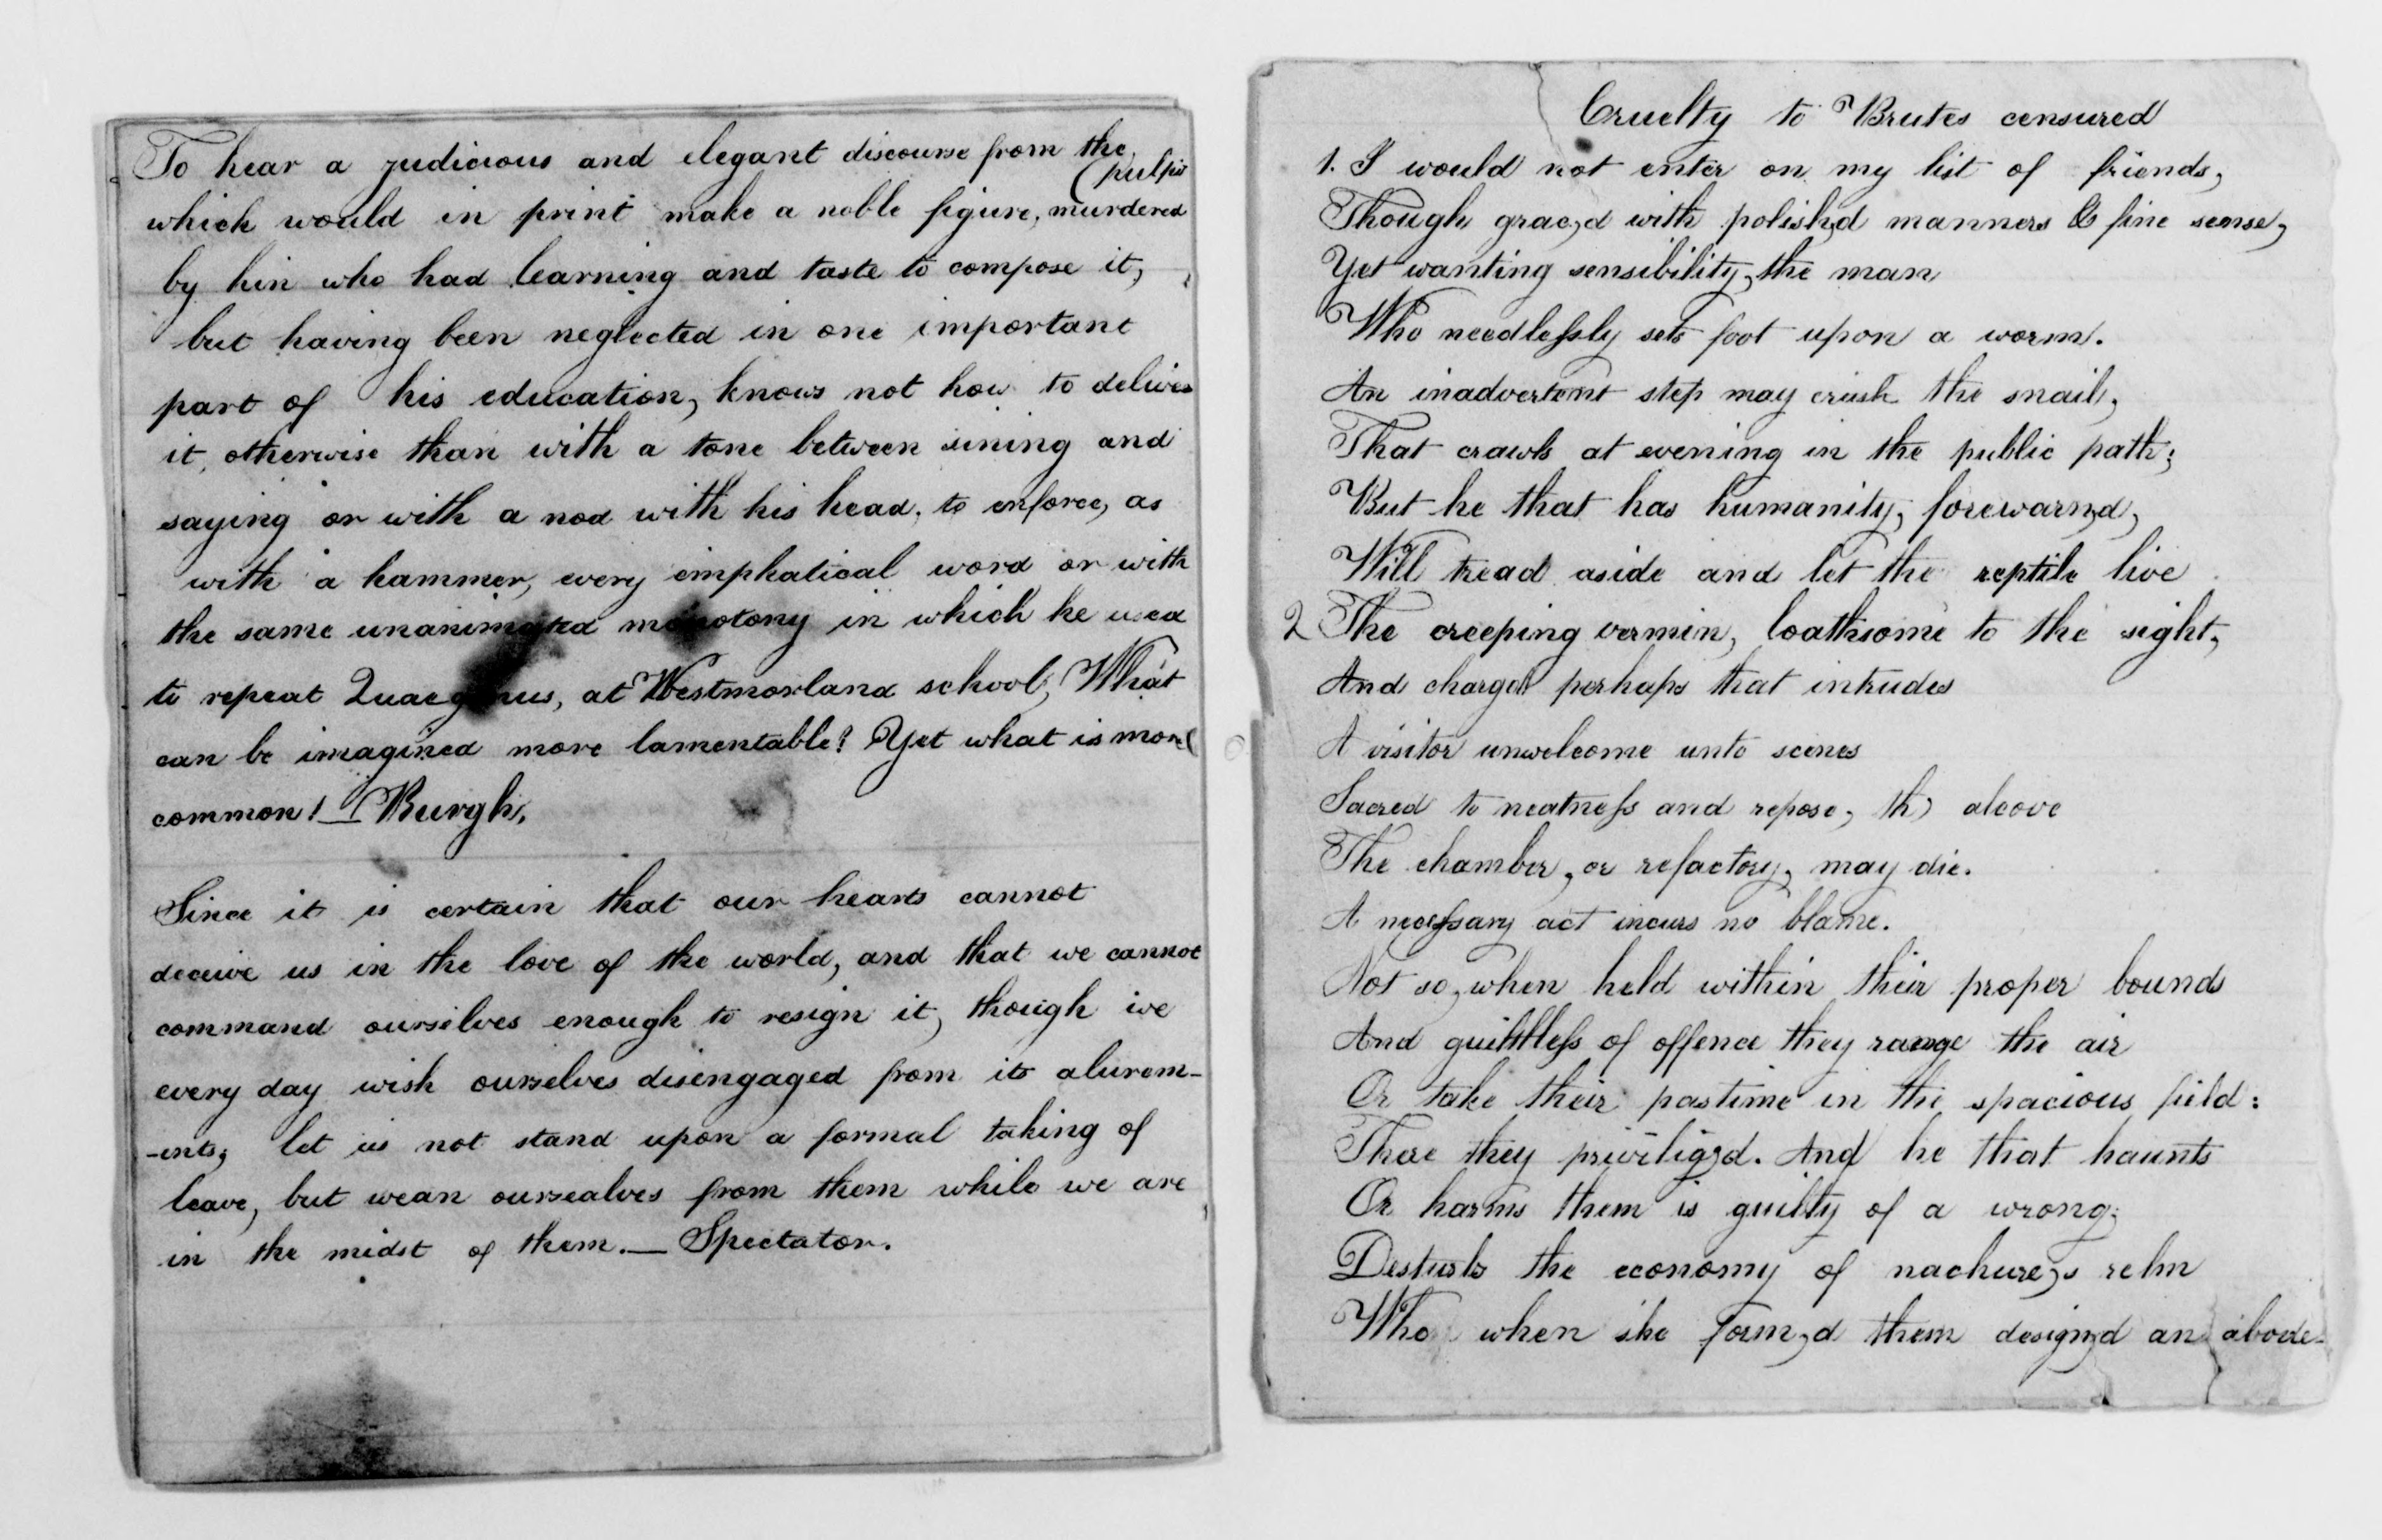 To hear a judicious and elegant discourse from the
(pulpit
which would in print make a noble figure, murdered
by hin who had learning and taste to compose it,
but having been neglected in one important
part of his education, knows not how to deliver
it, otherwise than with a tone between sining and
saying or with a nod with his head, to enforce, as
with a hammer, every emphatical word or with
the same unanimated monotony in which he used
to repeat Quae genus, at Westmorland school, What
can be imagined more lamentable? Yet what is more
common! — Burgh,
Since it is certain that our hearts cannot
deceive us in the love of the world, and that we cannot
command ourselves enough to resign it, though we
every day wish ourselves disengaged from its alurem-
-ents, let us not stand upon a formal taking of
leave, but wean oursealves from them while we are
in the midst of them. — Spectator.
Cruelty to Brutes censured
1. I would not enter on my list of friends,
Though grac,d with polish,d manners & fine sense,
Yet wanting sensibility, the man
Who needlessly sets foot upon a worm.
An inadvertent step may crush the snail,
That crawls at evening in the public path;
But he that has humanity, forewarn,d,
Will tread aside and let the reptile live
2 The creeping vermin, loathsome to the sight,
And charged perhaps that intrudes
A visitor unwelcome unto scenes
Sacred to neatness and repose, th) alcove
The chamber, or refactory, may die.
A necessary act incurs no blame.
Not so, when held within their proper bounds
And guilttless of offence they range the air
Or take their pastime in the spacious field:
There they privilig,d. And he that haunts
Or harms them is guilty of a wrong;
Desturbs the economy of nachure,s relm
Who when she form,d them design,d an abode